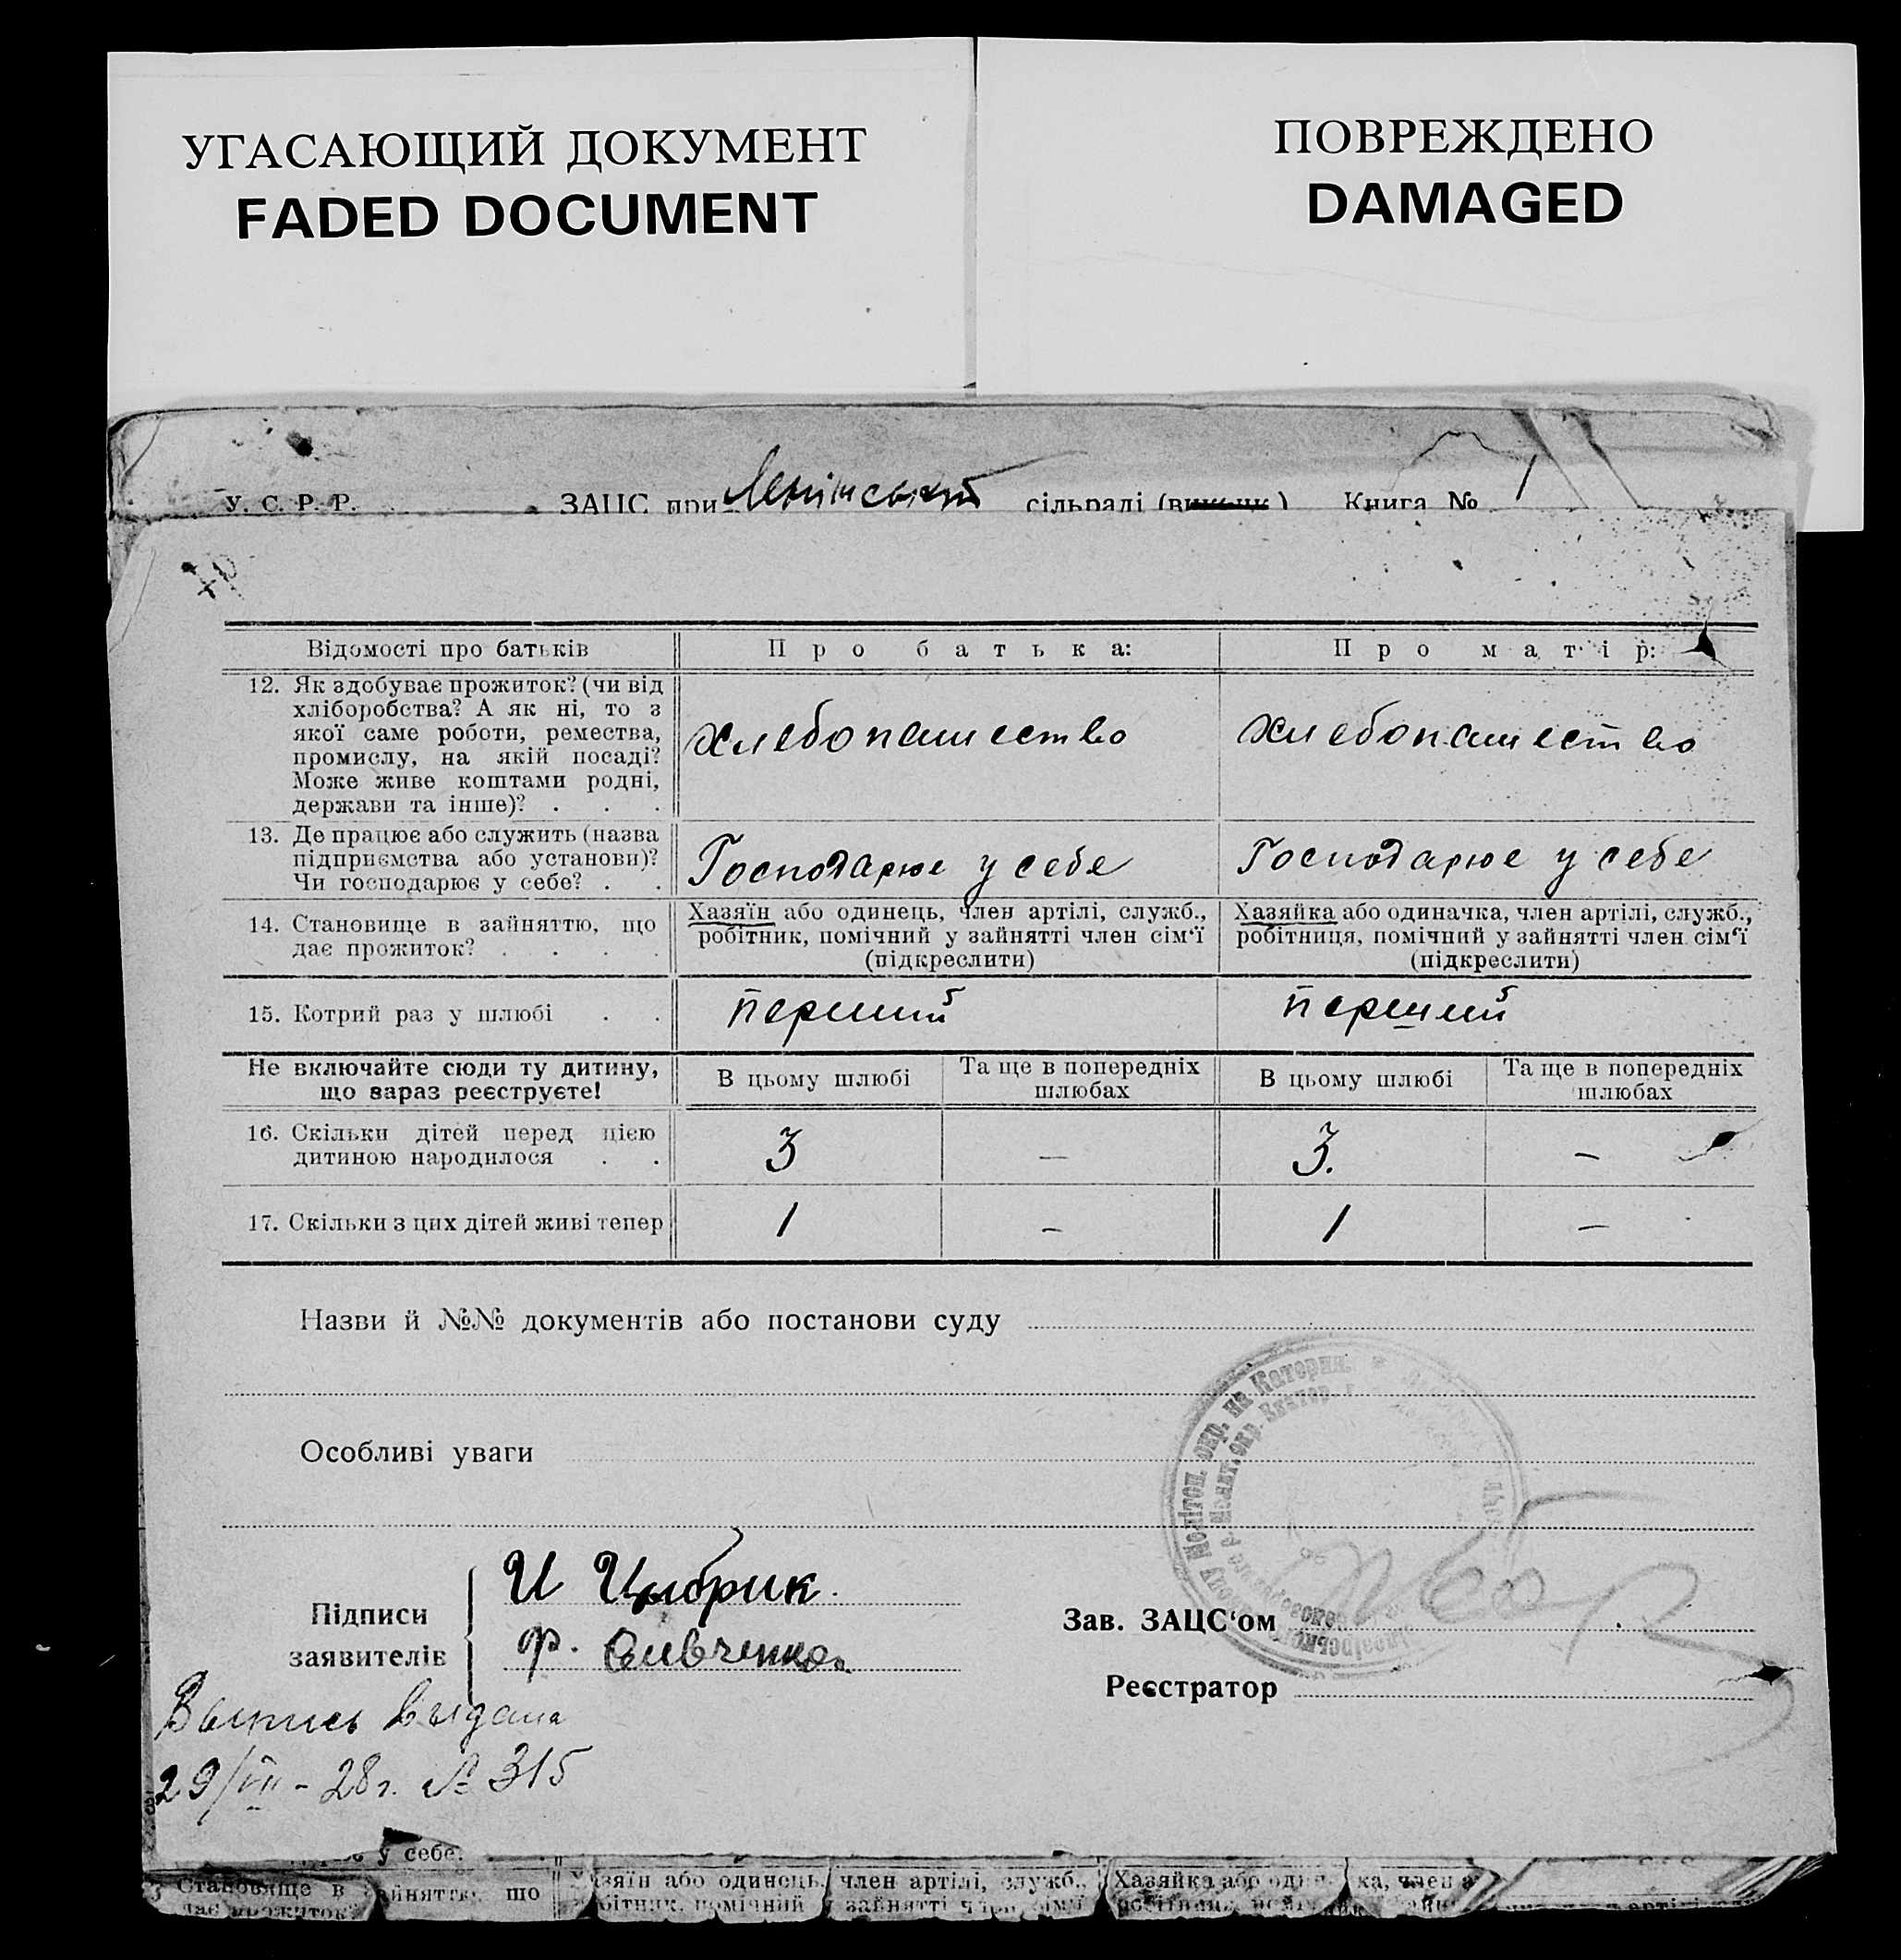 УГАСАЮЩИЙ ДОКУМЕНТ
FADED DOCUMENT
ПОВРЕЖДЕНО
DAMAGED
У. С. Р. Р. ЗАЦС при сільраді Книга № 1
Відомості про батьків Про батька: Про матір:
12. Як здобуває прожиток? (чи від
хліборобства? А як ні, то з
якої саме роботи, ремества,
промислу, на якій посаді?
Може живе коштами родні,
держави та інше)? . . .
хлебопашество хлебопашество
13. Де працює або служить (назва
підприємства або установи)?
Чи господарює у себе? . .
Господарює у себе Господарює у себе
14. Становище в зайняттю, що
дає прожиток? . . . .
Хазяїн або одинець, член артілі, служб.,
робітник, помічний у зайнятті член сім‘ї
(підкреслити)
Хазяйка або одиначка, член артілі, служб.,
робітниця, помічний у зайнятті член сім‘ї
(підкреслити)
15. Котрий раз у шлюбі . . перший перший
Не включайте сюди ту дитину,
що зараз реєструєте!
В цьому шлюбі
Та ще в попередніх
шлюбах
В цьому шлюбі
Та ще в попередніх
шлюбах
16. Скільки дітей перед цією
дитиною народилося . .
3 — 3. —
17. Скільки з цих дітей живі тепер 1 — 1 —
Назви й №№ документів або постанови суду
Особливі уваги
Мелітоп. окр. на Катерин.
Підписи
заявителів
И Цыбрик.
Ф.
Зав. ЗАЦС‘ом
Реєстратор
Выпись выдана
29/VIII - 28 г. № 315
у себе.
Становище в зайняттю, що
Хазяїн або одинець, член артілі, служб.,
Хазяйка або
дає прожиток?
помічний у зайнятті